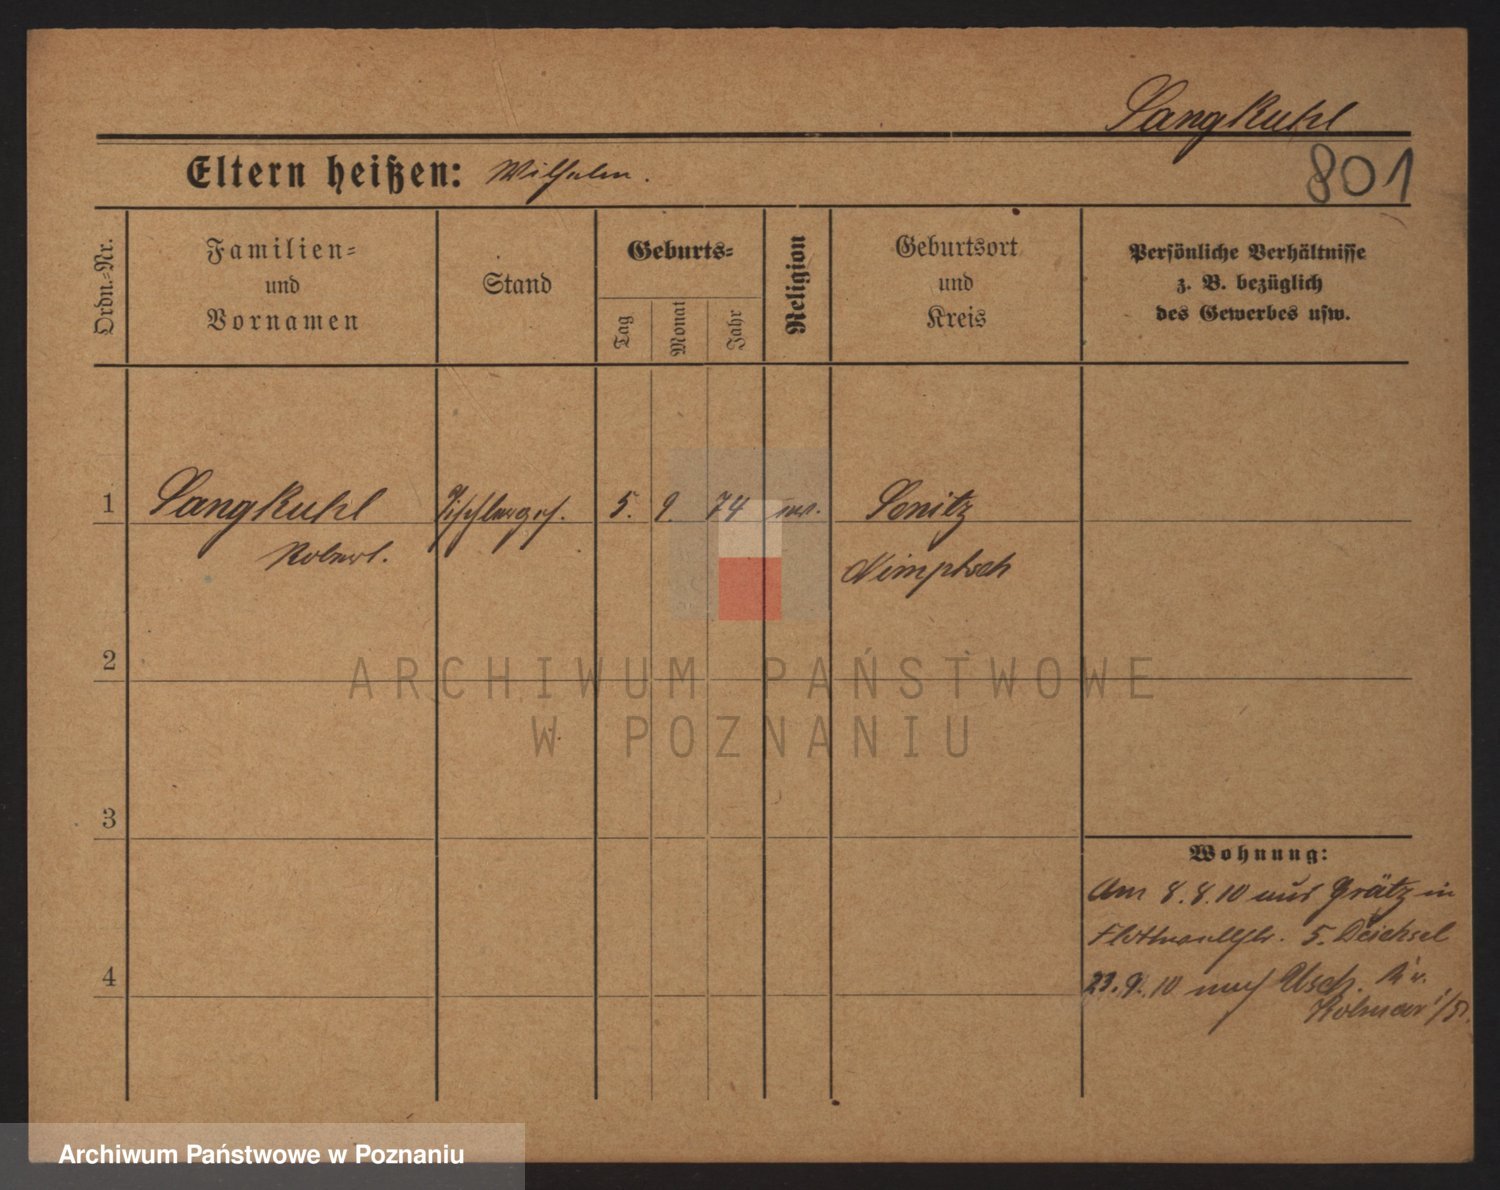 Langkuhl
801
Eltern heißen: Wilhelm.
Ordn.-Nr.
Familien-
und
Vornamen
Stand
Geburts-
Tag
Monat
Jahr
Religion
Geburtsort
und
Kreis
Persönliche Verhältnisse
z. B. bezüglich
des Gewerbes usw.
1 Langkuhl Tischlerges. 5. 9. 74 ev. Senitz
Robert. Nimptsch
2
ARCHIWUM PAŃSTWOWE
W POZNANIU
3
Wohnung:
Am 8.8.10 aus Grätz in
5. Deichsel
4
23.9.10 nach Usch. Kr.
Kolmar i/P.
Archiwum Państwowe w Poznaniu